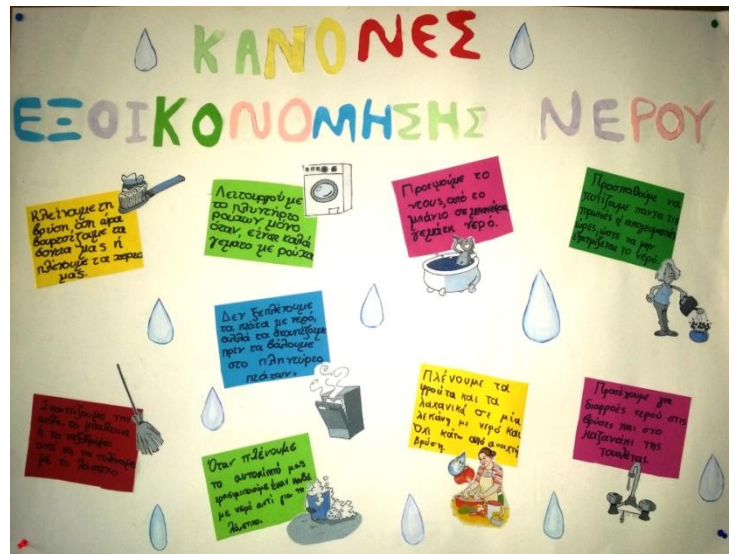 ΚΑΝΟΝΕΣ
ΕΞΟΙΚΟΝΟΜΗΣΗΣ ΝΕΡΟΥ
Κλείνουμε τη
βρύση, όση ώρα
βουρτσίζουμε τα
δόντια μας ή
πλένουμε τα χέρια
μας.
Λειτουργούμε
το πλυντήριο
ρούχων μόνο
όταν, είναι καλά
γεμάτο με ρούχα
Προτιμούμε το
ντους, από το
μπάνιο σε μπανιέρα
γεμάτη νερό.
Προσπαθούμε να
ποτίζουμε πάντα τις
πρωινές ή απογευματινές
ώρες, ώστε να μην
εξατμίζεται το νερό.
Δεν ξεπλένουμε
τα πιάτα με νερό,
αλλά τα σκουπίζουμε
πριν τα βάλουμε
στο πληντύριο
πιάτων.
Σκουπίζουμε την
αυλή, το μπαλκόνι
ή το πεζοδρόμιο
αντί να τα πλένουμε
με το λάστιχο
Όταν πλένουμε
το αυτοκίνητό μας
χρησιμοποιούμε έναν κουβά
με νερό αντί για το
λάστιχο.
Πλένουμε τα
φρούτα και τα
λαχανικά σε μία
λεκάνη με νερό και
όχι κάτω από ανοιχτή
βρύση.
Προσέχουμε για
διαρροές νερού στις
βρύσες και στο
καζανάκι της
τουαλέτας.